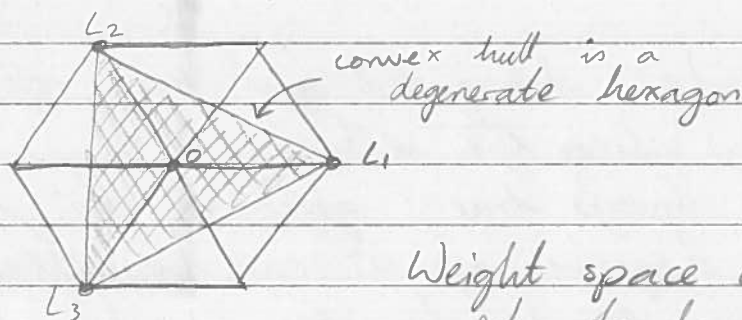 L2
convex hull is a
degenerate hexagon
O
L1
Weight space
L3